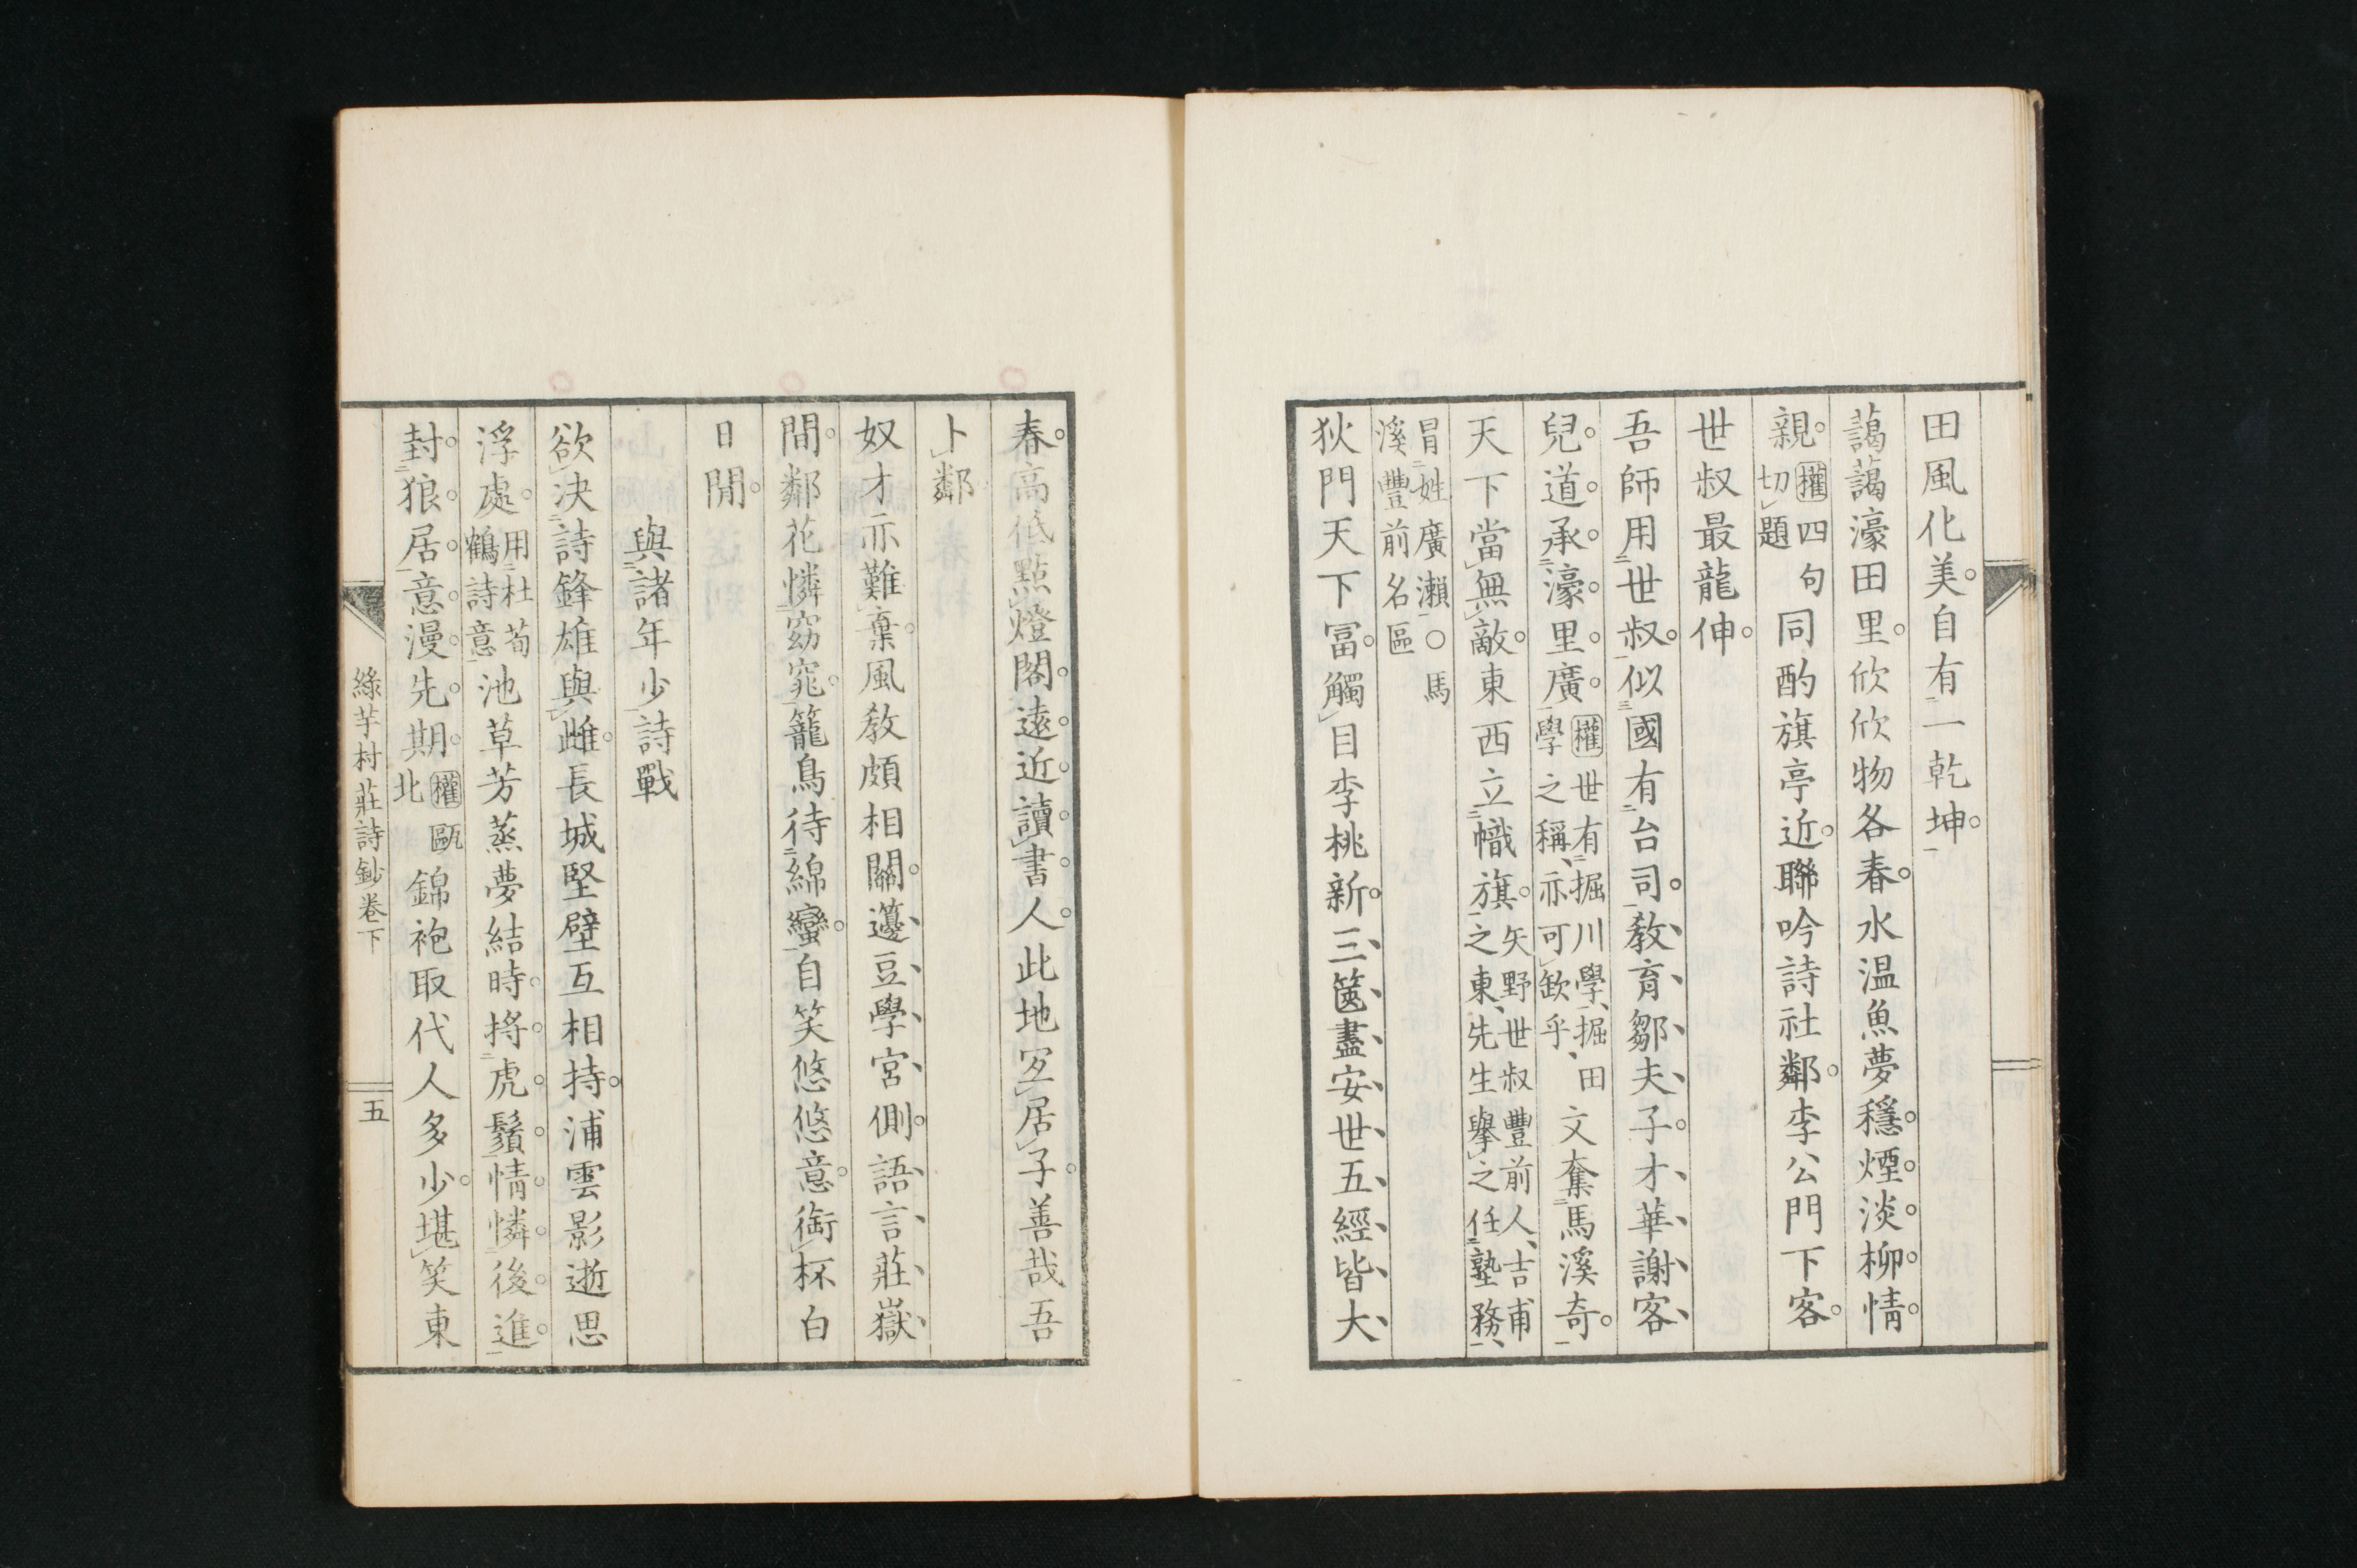 田風化美自有一乾坤
藹藹濠田里欣欣物各春水温魚夢穩煙淡柳情
親權四句切題同酌旗亭近聯吟詩社鄰李公門下客
世叔最龍伸
吾師用世叔似國有台司敎育鄒夫子才華謝客
兒道承濠里廣權世有掘川學掘田學之稱亦可欽乎文奪馬溪奇
天下當無敵東西立幟旗矢野世叔豐前人吉甫之東先生擧之任塾務
冒姓廣瀨〇馬溪豐前名區
狄門天下冨觸目李桃新三篋盡安世五經皆大
春高低點燈閣遠近讀書人此地㝡居子善哉吾
卜鄰
奴才亦難棄風敎頗相關籩豆學宮側語言莊嶽
間鄰花憐窈窕籠鳥待綿蠻自笑悠悠意銜杯白
日閒
與諸年少詩戰
欲決詩鋒雄與雌長城堅壁互相持浦雲影逝思
浮處用杜荀鶴詩意池草芳蒸夢結時捋虎鬚情憐後進
封狼居意漫先期權甌北錦袍取代人多少堪笑東
綠芋村莊詩鈔卷下
五